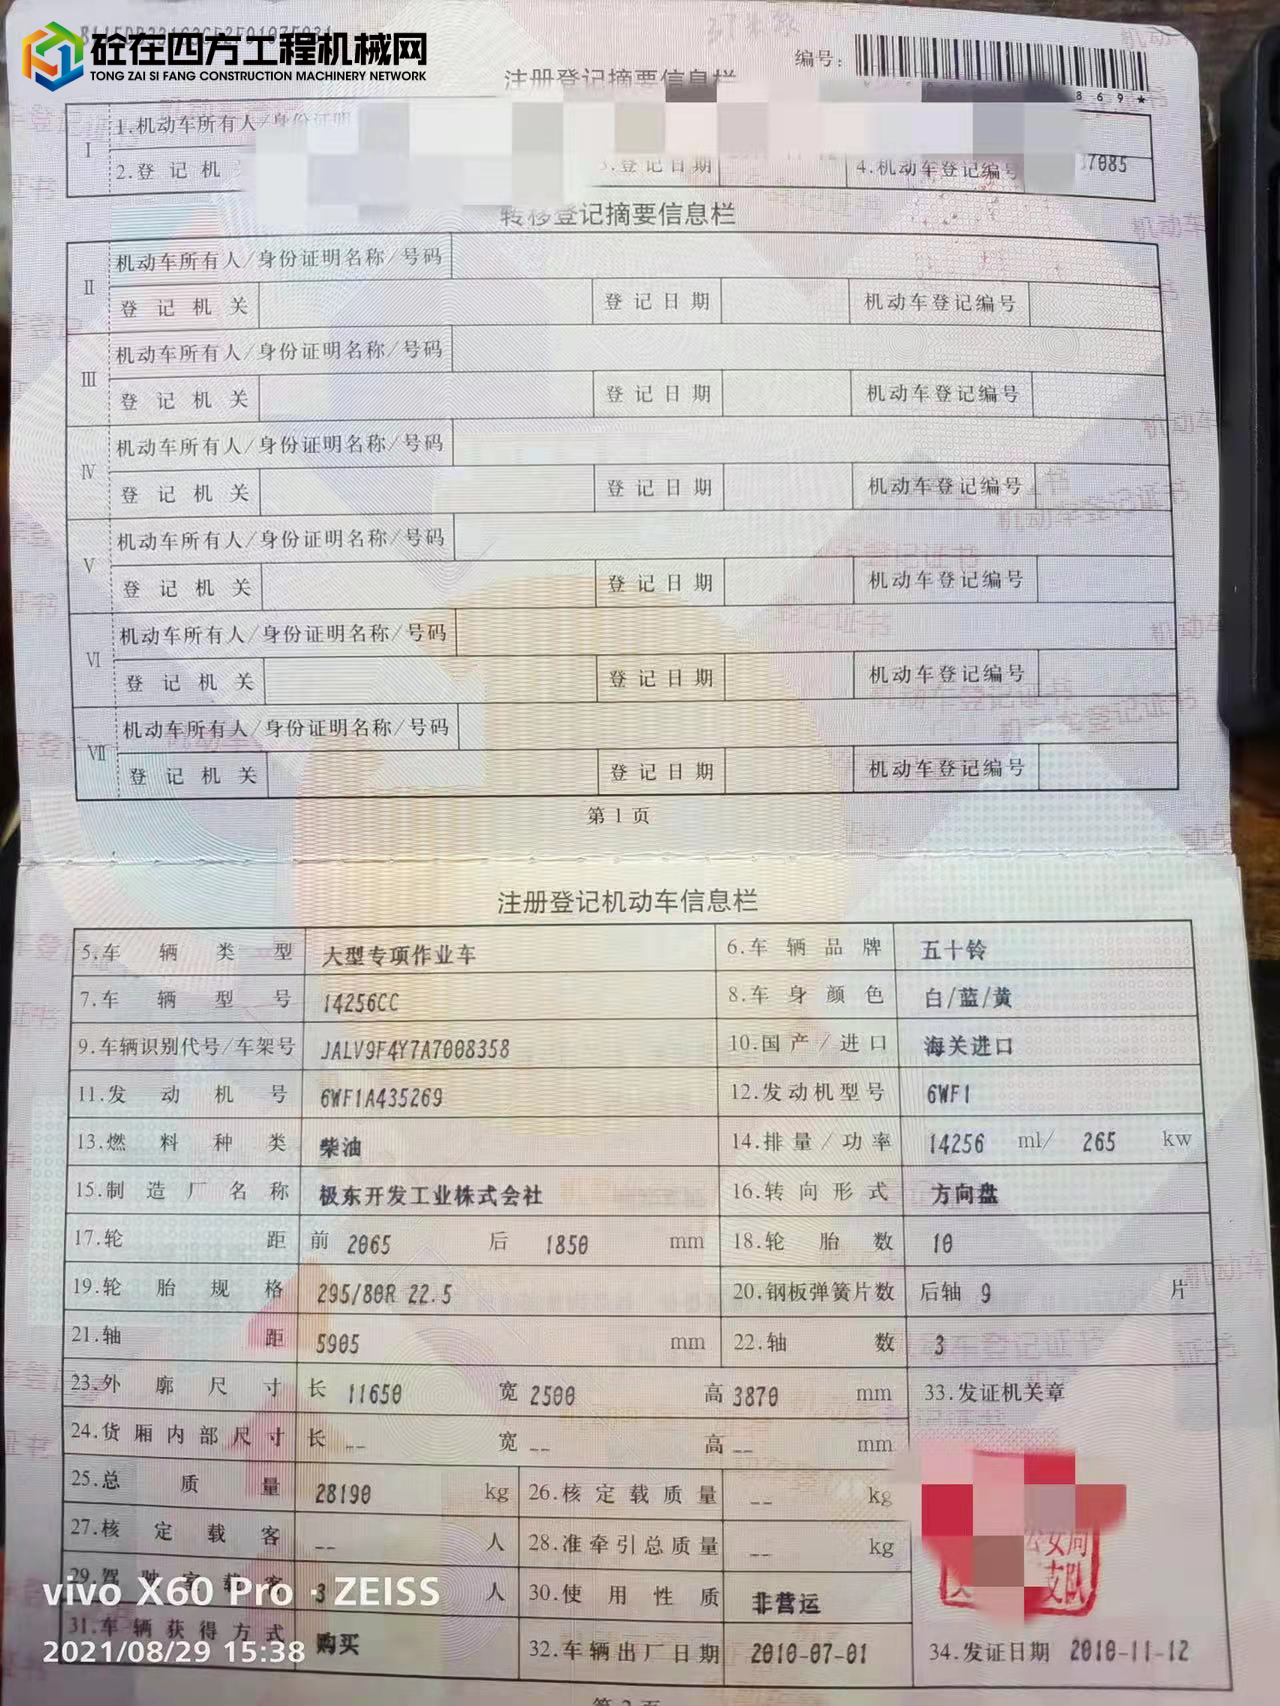 砼在四方工程机械网
TONG ZAI SI FANG CONSTRUCTION MACHINERY NETWORK
编号:
869★
注册登记摘要信息栏
I 1.机动车所有人/身份证明
2.登记机 3.登记日期 4.机动车登记编号 7085
转移登记摘要信息栏
II 机动车所有人/身份证明名称/号码
登记机关 登记日期 机动车登记编号
III 机动车所有人/身份证明名称/号码
登记机关 登记日期 机动车登记编号
IV 机动车所有人/身份证明名称/号码
登记机关 登记日期 机动车登记编号
V 机动车所有人/身份证明名称/号码
登记机关 登记日期 机动车登记编号
VI 机动车所有人/身份证明名称/号码
登记机关 登记日期 机动车登记编号
VII 机动车所有人/身份证明名称/号码
登记机关 登记日期 机动车登记编号
第1页
注册登记机动车信息栏
5.车辆类型 大型专项作业车 6.车辆品牌 五十铃
7.车辆型号 14256CC 8.车身颜色 白/蓝/黄
9.车辆识别代号/车架号 JALV9F4Y7A7008358 10.国产/进口 海关进口
11.发动机号 6WF1A435269 12.发动机型号 6WF1
13.燃料种类 柴油 14.排量/功率 14256 ml/ 265 kw
15.制造厂名称 极东开发工业株式会社 16.转向形式 方向盘
17.轮距 前 2065 后 1850 mm 18.轮胎数 10
19.轮胎规格 295/80R 22.5 20.钢板弹簧片数 后轴 9 片
21.轴距 5905 mm 22.轴数 3
23.外廓尺寸 长 11650 宽 2500 高 3870 mm 33.发证机关章
24.货厢内部尺寸 长 -- 宽 -- 高 -- mm
25.总质量 28190 kg 26.核定载质量 -- kg
27.核定载客 -- 人 28.准牵引总质量 -- kg
公安局
支队
29.驾驶室载客 3 人 30.使用性质 非营运
31.车辆获得方式 购买 32.车辆出厂日期 2010-07-01 34.发证日期 2010-11-12
vivo X60 Pro · ZEISS
2021/08/29 15:38